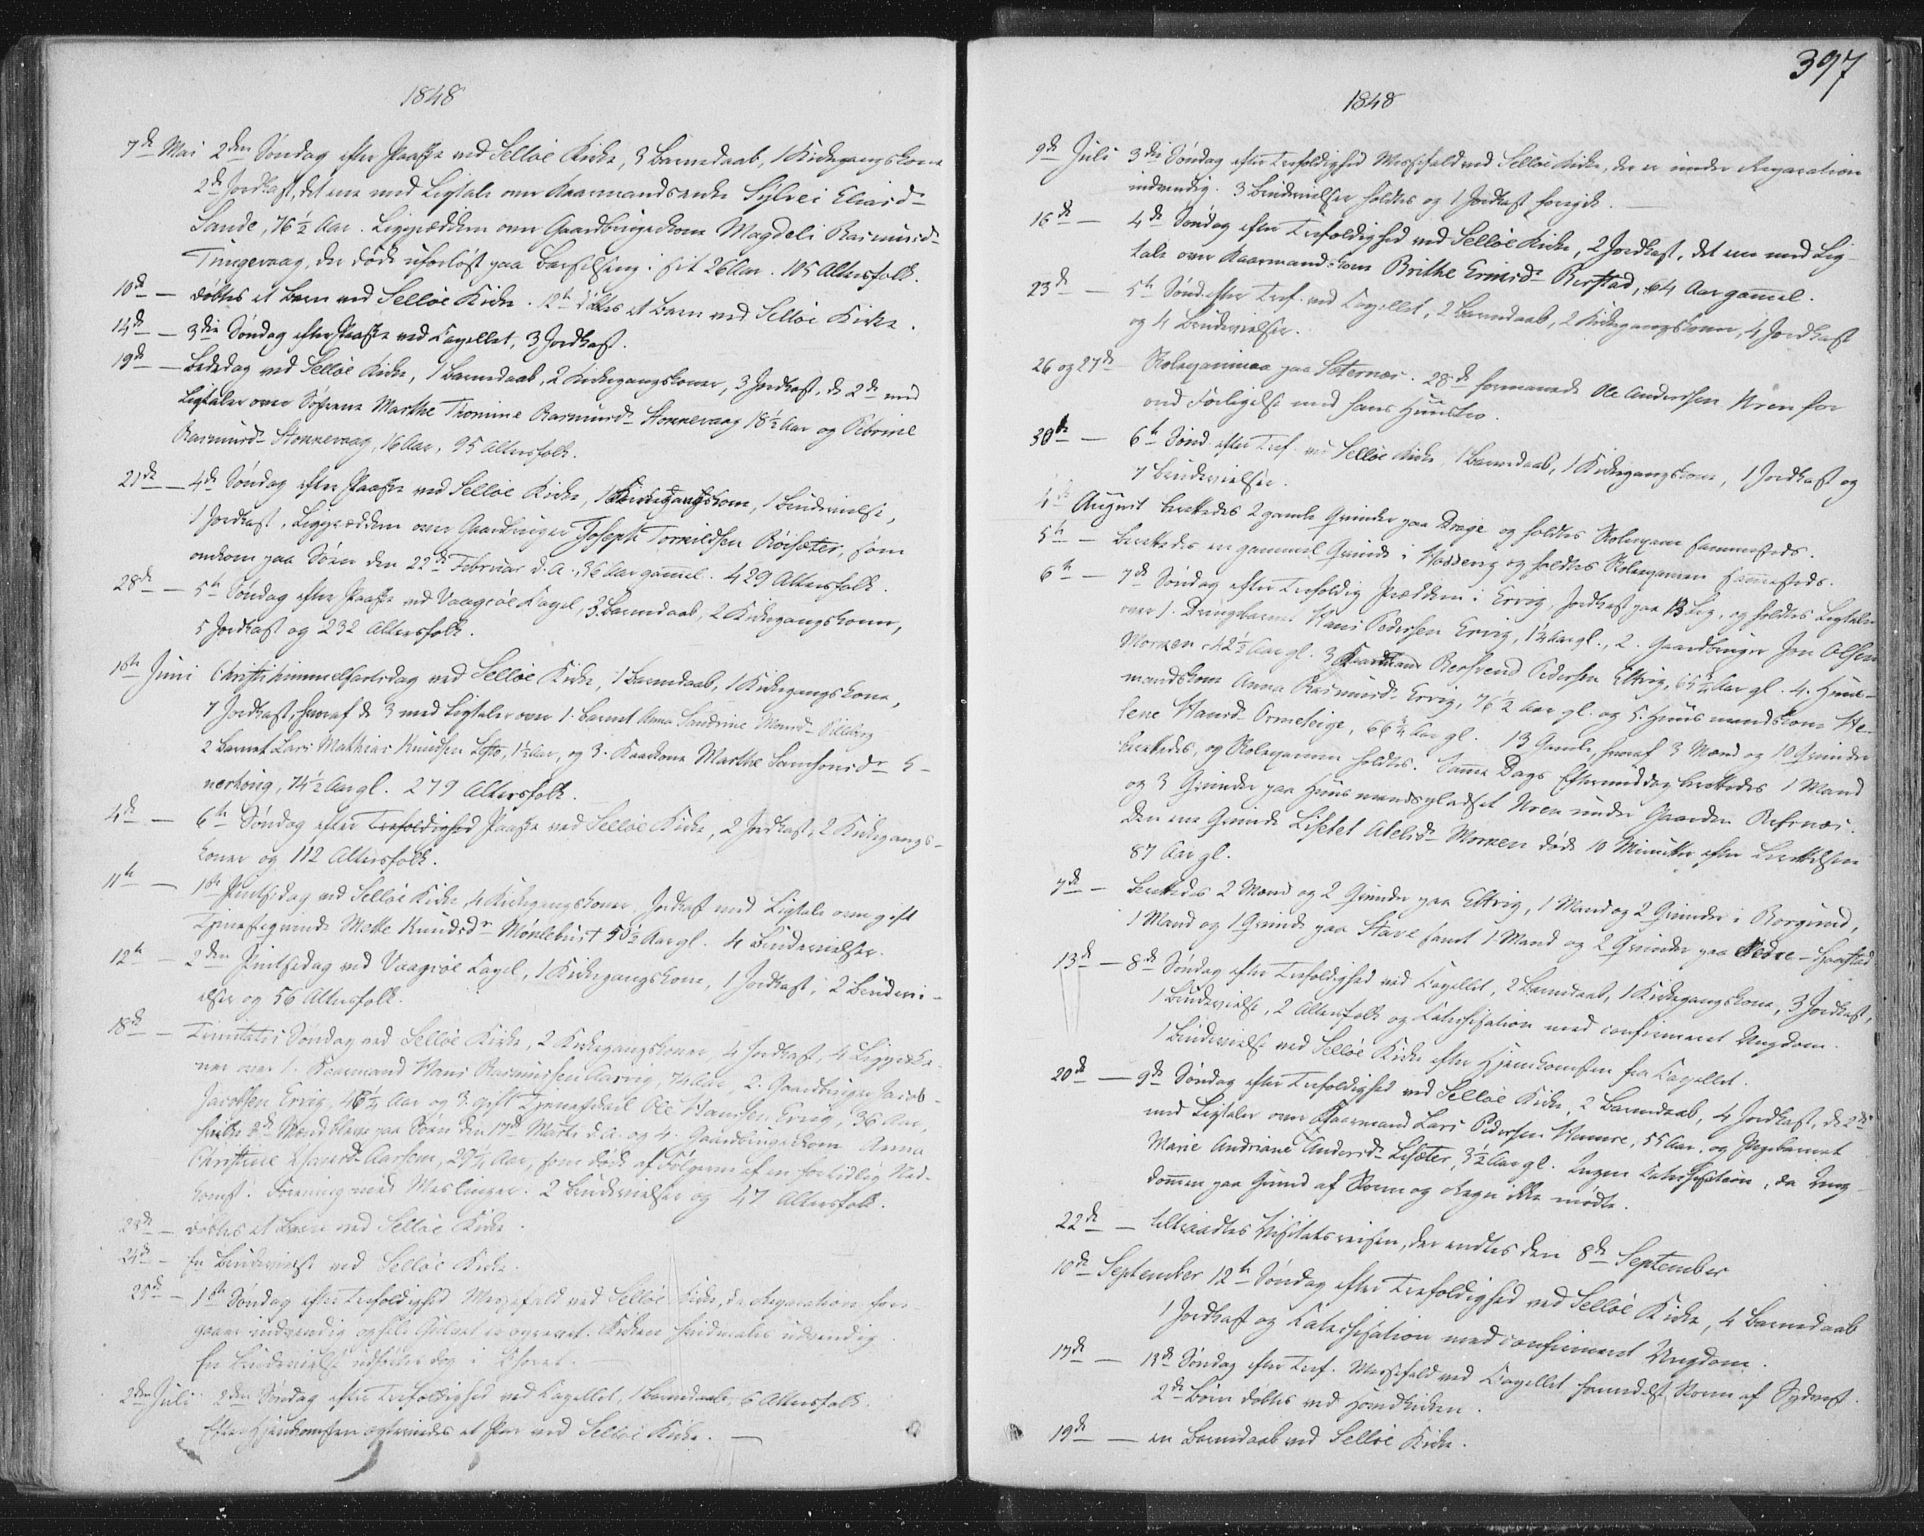 1848
7de Mai 2den Søndag efter Paaske ved Selløe Kirke, 3 Barnedaab, 1 Kirkegangskone
2de Jordkast, det ene med Ligtale over Kaarmandsenke Sylvei Eliasd-
Sande, 76 1/2 Aar. Ligprædiken over Gaardbrugerkone Magdeli Rasmusd-
Tungevaag, der døde uforløst paa Barselseng i sit 26 Aar. 105 Altersfolk.
10de — døbtes et Barn ved Selløe Kirke. 12te døbtes et Barn ved Selløe Kirke.
14de — 3die Søndag efter Paaske ved Capellet, 3 Jordkast.
19de — Bededag ved Selløe Kirke, 1 Barnedaab, 2 Kirkegangskoner, 3 Jordkast, de 2de med
Ligtaler over Søstrene Marthe Thomine Rasmusd- Stonnevaag 18 1/2 Aar og Petrine
Rasmusd- Stonnevaag, 16 Aar, 95 Altersfolk.
21de — 4de Søndag efter Paaske ved Selløe Kirke, 1 Kirkegangskone, 1 Brudevielse,
1 Jordkast. Ligprædiken over Gaardbruger Joseph Tornildsen Röisæter, som
omkom paa Søen den 22de Februar d.A., 36 Aar gammel. 429 Altersfolk.
28de — 5te Søndag efter Paaske ved Vaagsøe Capel, 3 Barnedaab, 2 Kirkegangskoner,
5 Jordkast og 232 Altersfolk.
1ste Juni Christi himmelfartsdag ved Selløe Kirke, 1 Barnedaab, 1 Kirkegangskone,
7 Jordkast, hvoraf de 3 med Ligtaler over 1. Barnet Anna Sandrine Monsd-
2 Barnet Lars Mathias Knudsen 1 1/2 Aar, og 3. Kaarkone Marthe Samsonsd- S-
nerhoug, 74 1/2 Aar gl. 279 Altersfolk.
4de — 6te Søndag efter Trefoldighed Paaske ved Selløe Kirke, 2 Jordkast, 2 Kirkegangs-
koner og 112 Altersfolk.
11te — 1ste Pintsedag ved Selløe Kirke, 4 Kirkegangskoner, Jordkast med Ligtale over gift
Tjenestqvinde Mette Knudsdr Mönlebust 50 1/2 Aar gl. 4 Brudevielser.
12te — 2den Pintsedag ved Vaagsøe Capel, 1 Kirkegangskone, 1 Jordkast, 2 Brudevi-
elser og 56 Altersfolk.
18de — Trinitatis Søndag ved Selløe Kirke, 2 Kirkegangskoner, 4 Jordkast, 4 Ligprædike-
ner over 1. Kaarmand Hans Rasmussen Aarvig, 74 Aar, 2. Gaardbruger Jacob
Jacobsen Ervig, 46 1/4 Aar og 3. gift Tjenestekarl Ole Hansen Ervig, 36 Aar,
hvilke 2de Mænd bleve paa Søen den 17de Marts d.A. og 4. Gaardbrugerkone Anna
Christine Aarsem, 29 1/4 Aar, som døde af Følgerne af en fortidlig Ned-
komst i Forening med Meslinger. 2 Brudevielser og 47 Altersfolk.
23de — døbtes et Barn ved Selløe Kirke.
24de — En Brudevielse ved Selløe Kirke.
25de — 1ste Søndag efter Trefoldighed Messefald ved Selløe Kirke, da Reparation fore-
gaaer indvendig og hele Gulvet er oprevet. Kirken udvendig.
En Brudevielse udførtes dog i Choret.
2den Juli 2den Søndag efter Trefoldighed ved Capellet, 1 Barnedaab, 6 Altersfolk.
Efter Hjemkomsten ved Selløe Kirke. —
397
1848
9de Juli 3die Søndag efter Trefoldighed Messefald ved Selløe Kirke, der er under Reparation
indvendig. 3 Brudevielser holdtes og 1 Jordkast foregik. —
16de — 4de Søndag efter Trefoldighed ved Selløe Kirke, 2 Jordkast, det ene med Lig-
tale over Kaarmandskone Brithe Ermisd- Berstad, 64 Aar gammel.
23de — 5te Sønd. efter Tref. ved Capellet, 2 Barnedaab, 2 Kirkegangskoner, 4 Jordkast
og 4 Brudevielser.
26 og 27de Skoleexamina paa Sæternæs. 28de formanede Ole Anderssen Nren for
ond Forligelse med hans Huustro.
30te — 6te Sønd. efter Tref. ved Selløe Kirke, 1 Barnedaab, 1 Kirkegangskone, 1 Jordkast og
7 Brudevielser.
4de August berettedes 2 gamle Qvinder paa Drage og holdtes Skoleexamen sammesteds.
5te — berettedes en gammel Qvinde i Hoddevig og holdtes Skoleexamen sammesteds.
6te — 7de Søndag efter Trefoldig Prædiken i Ervig, Jordkast paa 13 Lig, og holdtes Ligtaler
over 1. Drengebarnet Hans Pedersen Ervig, 1 1/4 Aar gl., 2. Gaardbruger Jon Olsen
Morken, 42 1/2 Aar gl. 3 Kaarmand Bersvend Pedersen Eltvig, 65 3/4 Aar gl. 4. Huus-
mandskone Anna Rasmusd- Ervig, 76 1/2 Aar gl. og 5. Huusmandskone He-
lene Hansd- Ormeseige, 66 3/4 Aar gl. 13 Gamle, hvoraf 3 Mænd og 10 Qvinder
berettedes, og Skoleexamen holdtes. Samme Dags Eftermiddag berettedes 1 Mand
og 3 Qvinder paa Huusmandspladset Nren under Gaarden Refsnæs.
Den ene Qvinde Lisebet Atelsd- Morken døde 10 Minutter efter Berettelsen
87 Aar gl.
7de — berettedes 2 Mænd og 2 Qvinder paa Eltvig, 1 Mand og 2 Qvinder i Borgund,
1 Mand og 1 Qvinde paa Stave samt 1 Mand og 2 Qvinder paa Nedre-
13de — 8de Søndag efter Trefoldighed ved Capellet, 2 Barnedaab, 1 Kirkegangskone, 3 Jordkast,
1 Brudevielse, 2 Altersfolk og Catechisation med confirmeret Ungdom.
1 Brudevielse ved Selløe Kirke efter Hjemkomsten fra Capellet.
20de — 9de Søndag efter Trefoldighed ved Selløe Kirke, 2 Barnedaab, 4 Jordkast, de 2de
med Ligtaler over Kaarmand Lars Pedersen Hamre, 55 Aar, og Pigebarnet
Marie Andriane Andersd- Lisæter, 3 1/2 Aar gl. Ingen Catechisation, da Ung-
dommen paa Grund af Storm og Regn ikke mødte.
22de — tiltraadtes Visitatsreisen, der endtes den 8de September
10de September 12te Søndag efter Trefoldighed ved Selløe Kirke, 4 Barnedaab
1 Jordkast og Catechisation med confirmeret Ungdom.
17de — 13de Søndag efter Tref. Messefald ved Capellet formedelst Storm af Sydvest.
2de Børn døbtes ved Hovedkirken.
19de — en Barnedaab ved Selløe Kirke.